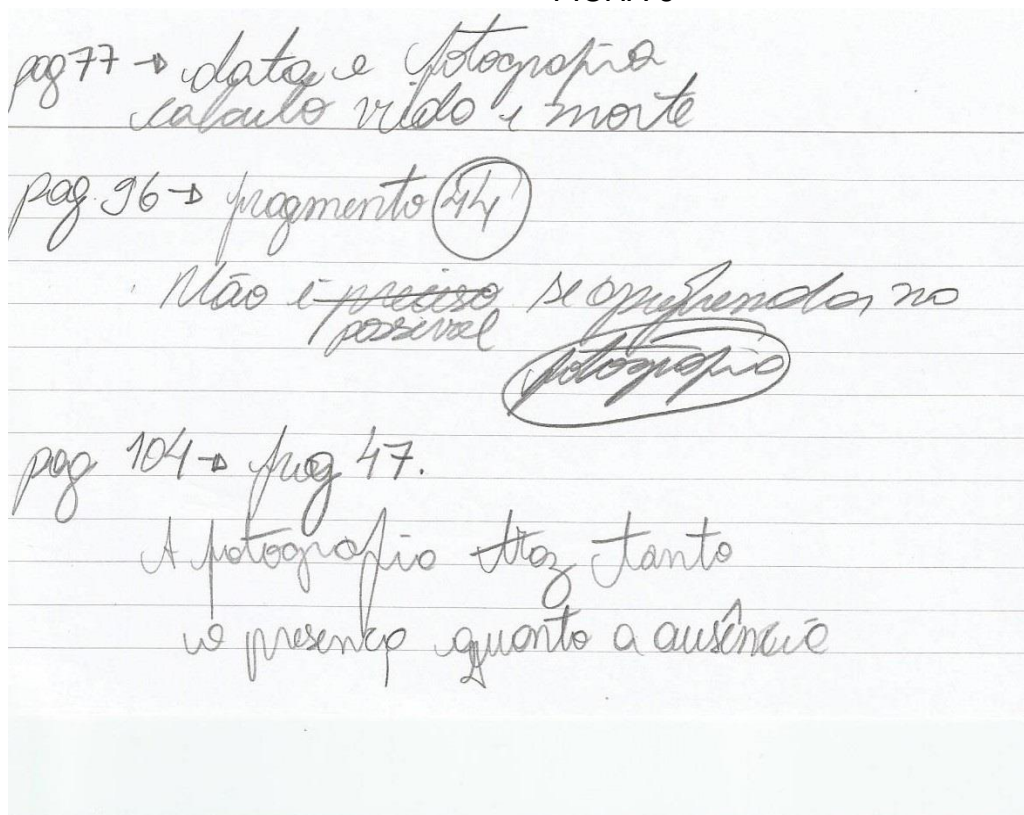 pag 77 → data e fotografia
calculo vida e morte
pag. 96 → fragmento 44
Não é preciso se aprofundar na
possível
fotografia
pag 104 → frag 47.
A fotografia traz tanto
a presença quanto a ausência